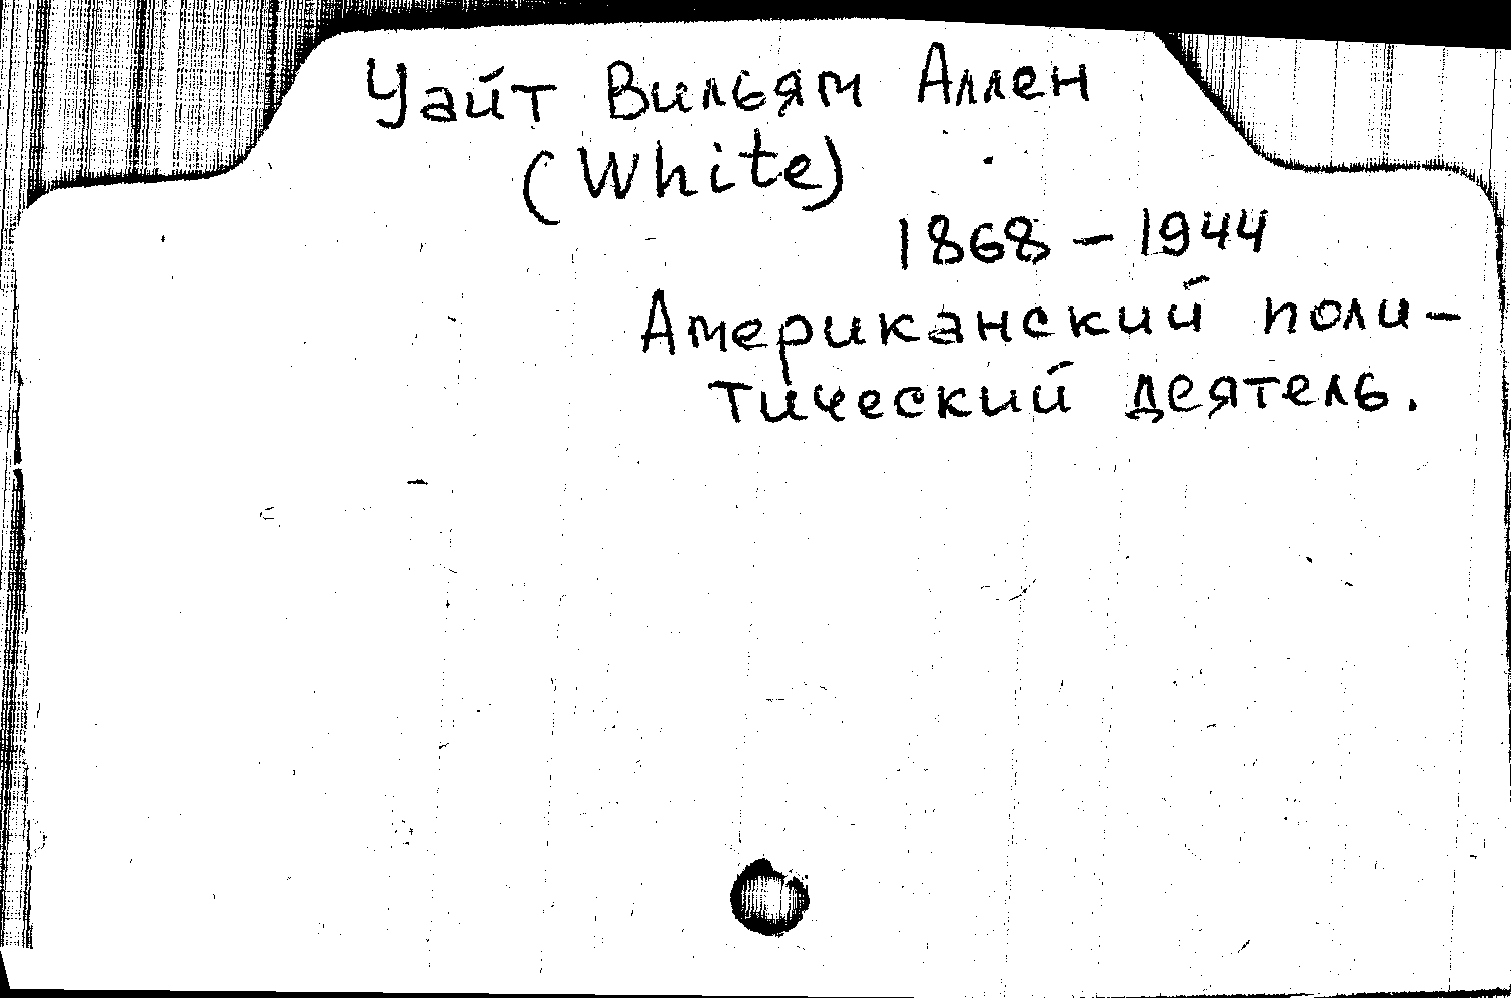 Уайт Вильям Аллен
(White)
1868 – 1944
Американский поли-
тический деятель.